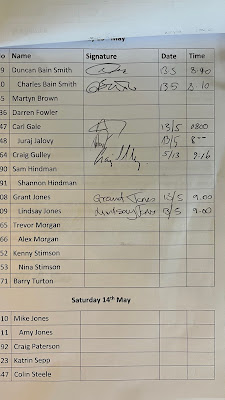 May
o Name Signature Date Time
9 Duncan Bain Smith 13.5 8.10
0 Charles Bain Smith 13.5 8.10
5 Martyn Brown
36 Darren Fowler
47 Cari Gale 13/5 0800
48 Juraj Jalovy 13/5 8--
64 Craig Gulley 5/13 8.16
90 Sam Hindman
91 Shannon Hindman
08 Grant Jones Grant Jones 13/5 9.00
09 Lindsay Jones Lindsay Jones 13/5 9.00
65 Trevor Morgan
66 Alex Morgan
52 Kenny Stimson
53 Nina Stimson
71 Barry Turton
Saturday 14th May
10 Mike Jones
11 Amy Jones
92 Craig Paterson
23 Katrin Sepp
47 Colin Steele